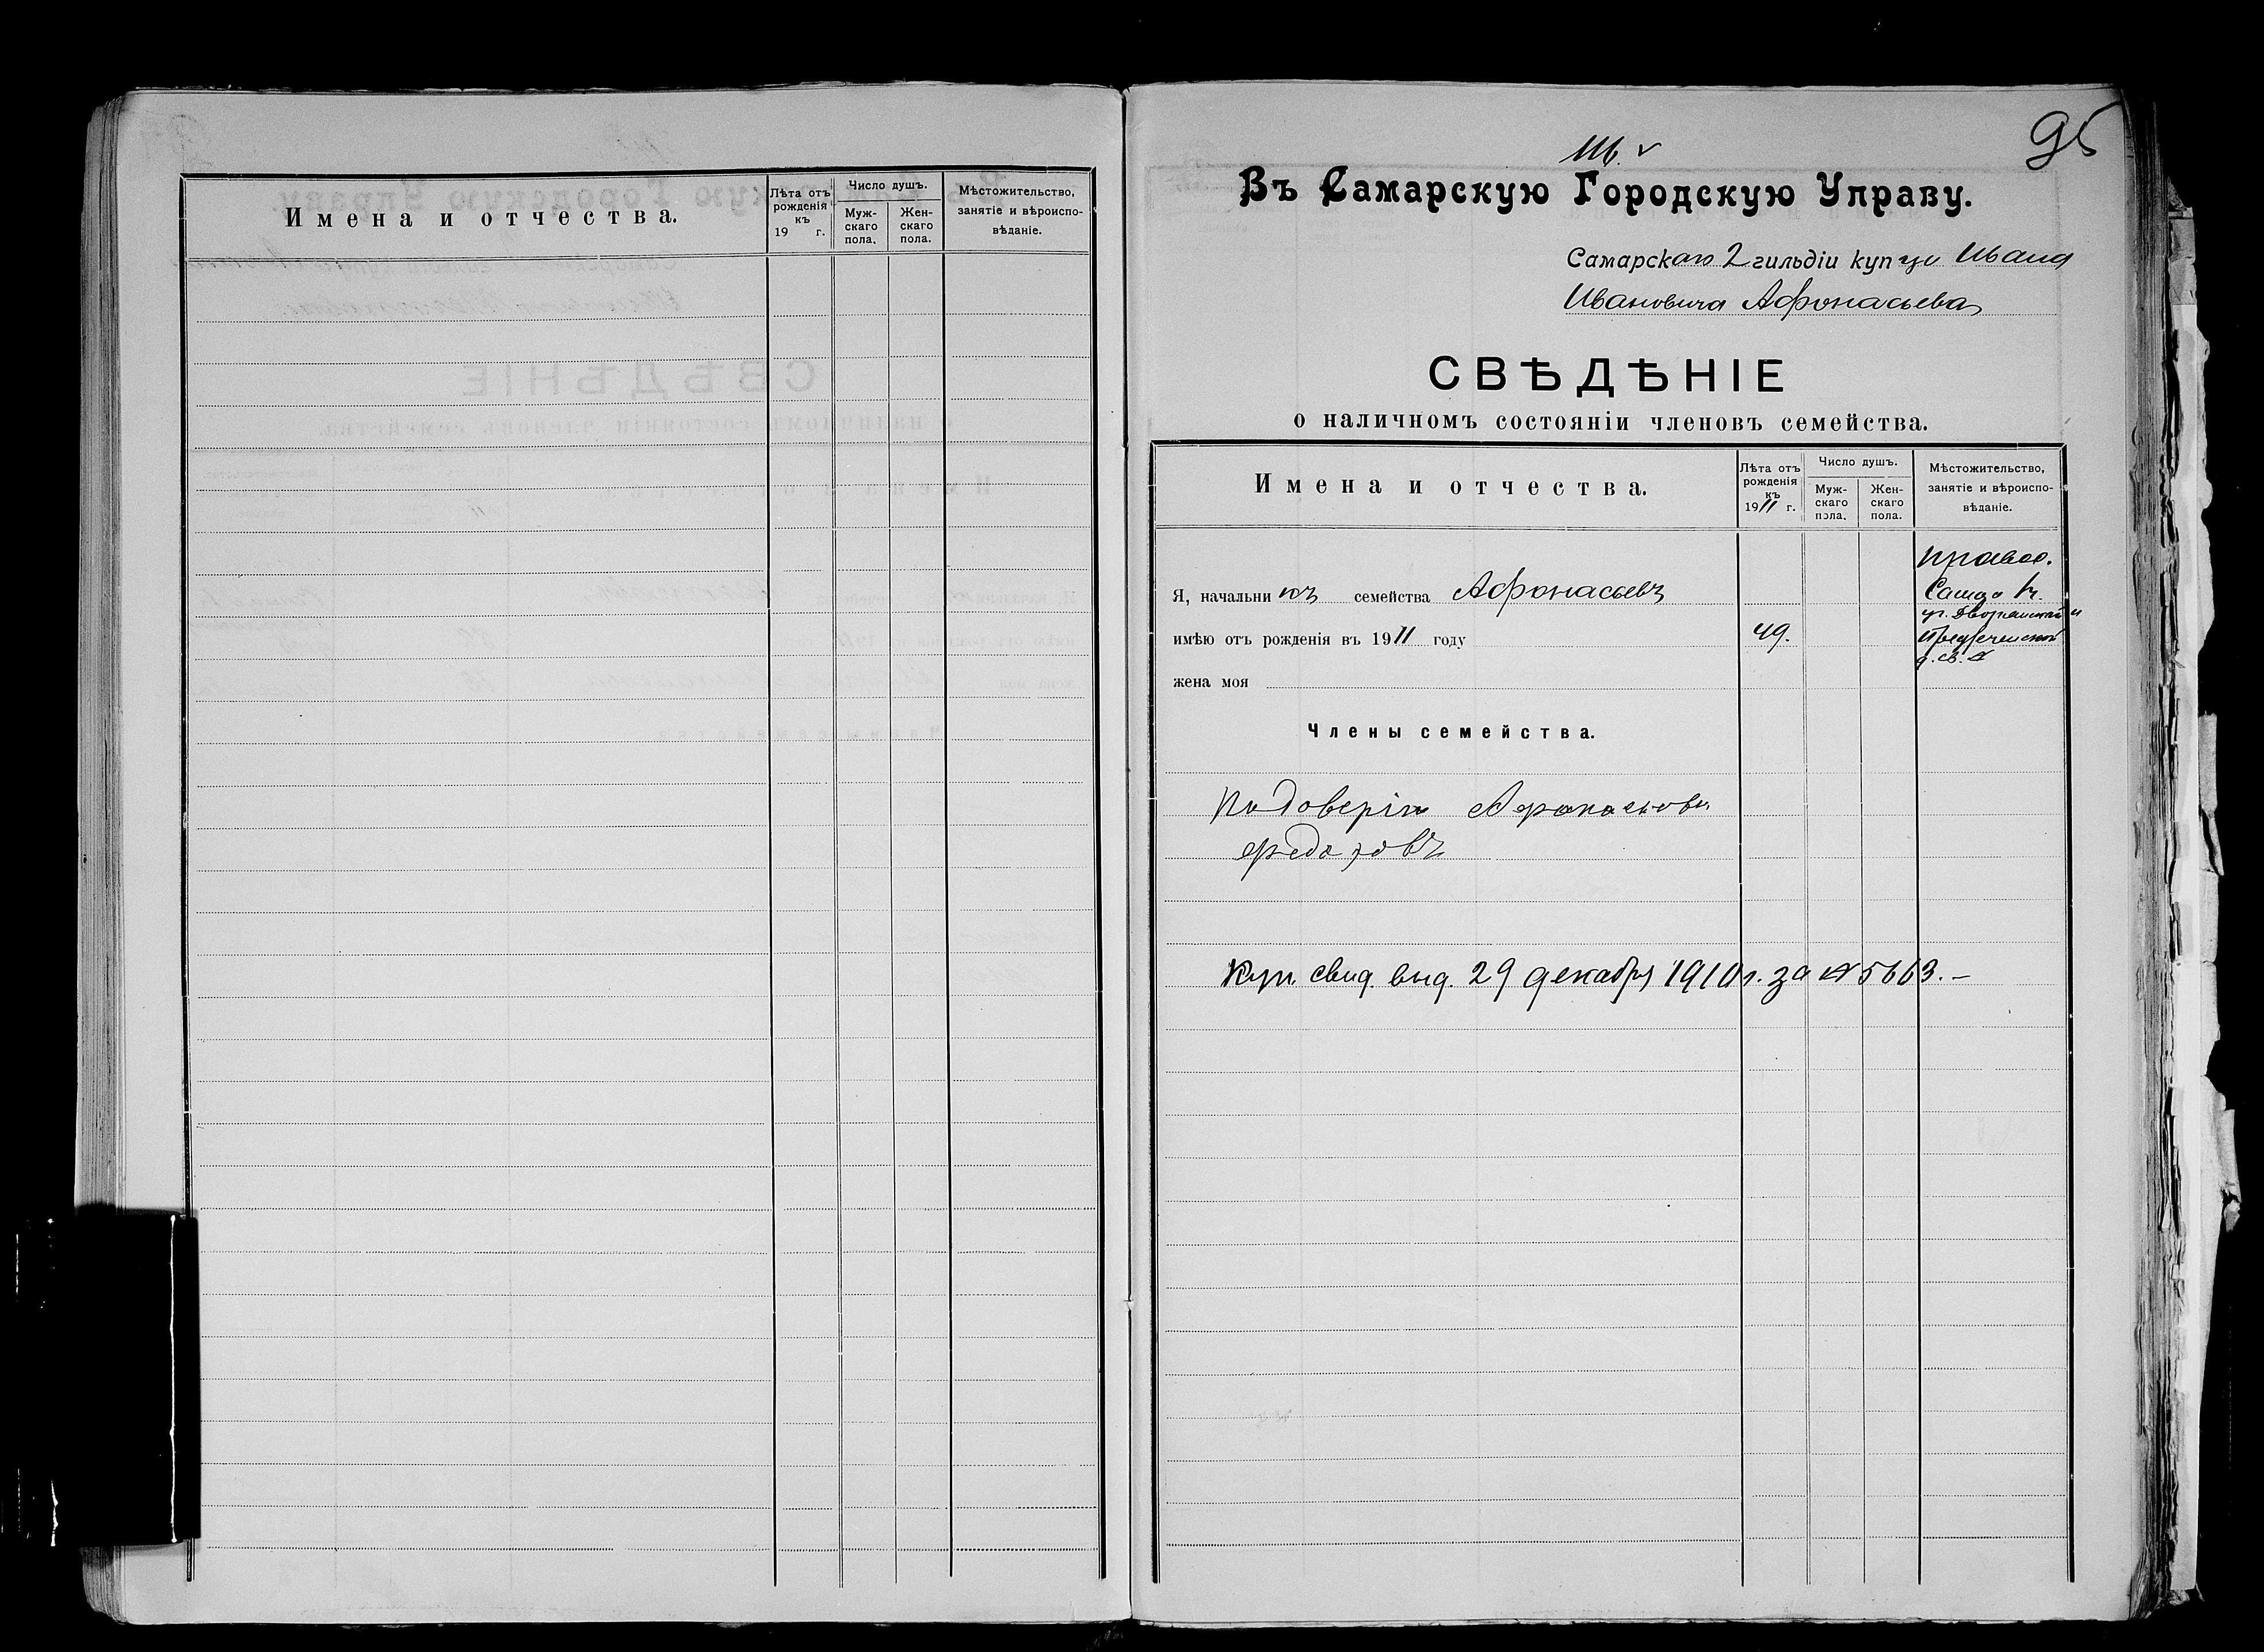 Имена и отчества.
Лѣта отъ рожденія къ 19 г.
Число душъ.
Мужскаго пола.
Женскаго пола.
Мѣстожительство, занятіе и вѣроисповѣданіе.
95
Въ Самарскую Городскую Управу.
Самарскаго 2 гильдіи купца Ивана
Ивановича Афонасьева
СВѢДѢНІЕ
о наличномъ состояніи членовъ семейства.
Имена и отчества.
Лѣта отъ рожденія къ 1911 г.
Число душъ.
Мужскаго пола.
Женскаго пола.
Мѣстожительство, занятіе и вѣроисповѣданіе.
правос.
Я, начальникъ семейства Афонасьевъ
Самара
уг. Дворянской и
имѣю отъ рожденія въ 1911 году 49.
Предтеченской
д. св.
жена моя
Члены семейства.
По доверію Афонасьева
Федоровъ
Куп. свид. выд. 29 декабря 1910 г. за № 5663.-